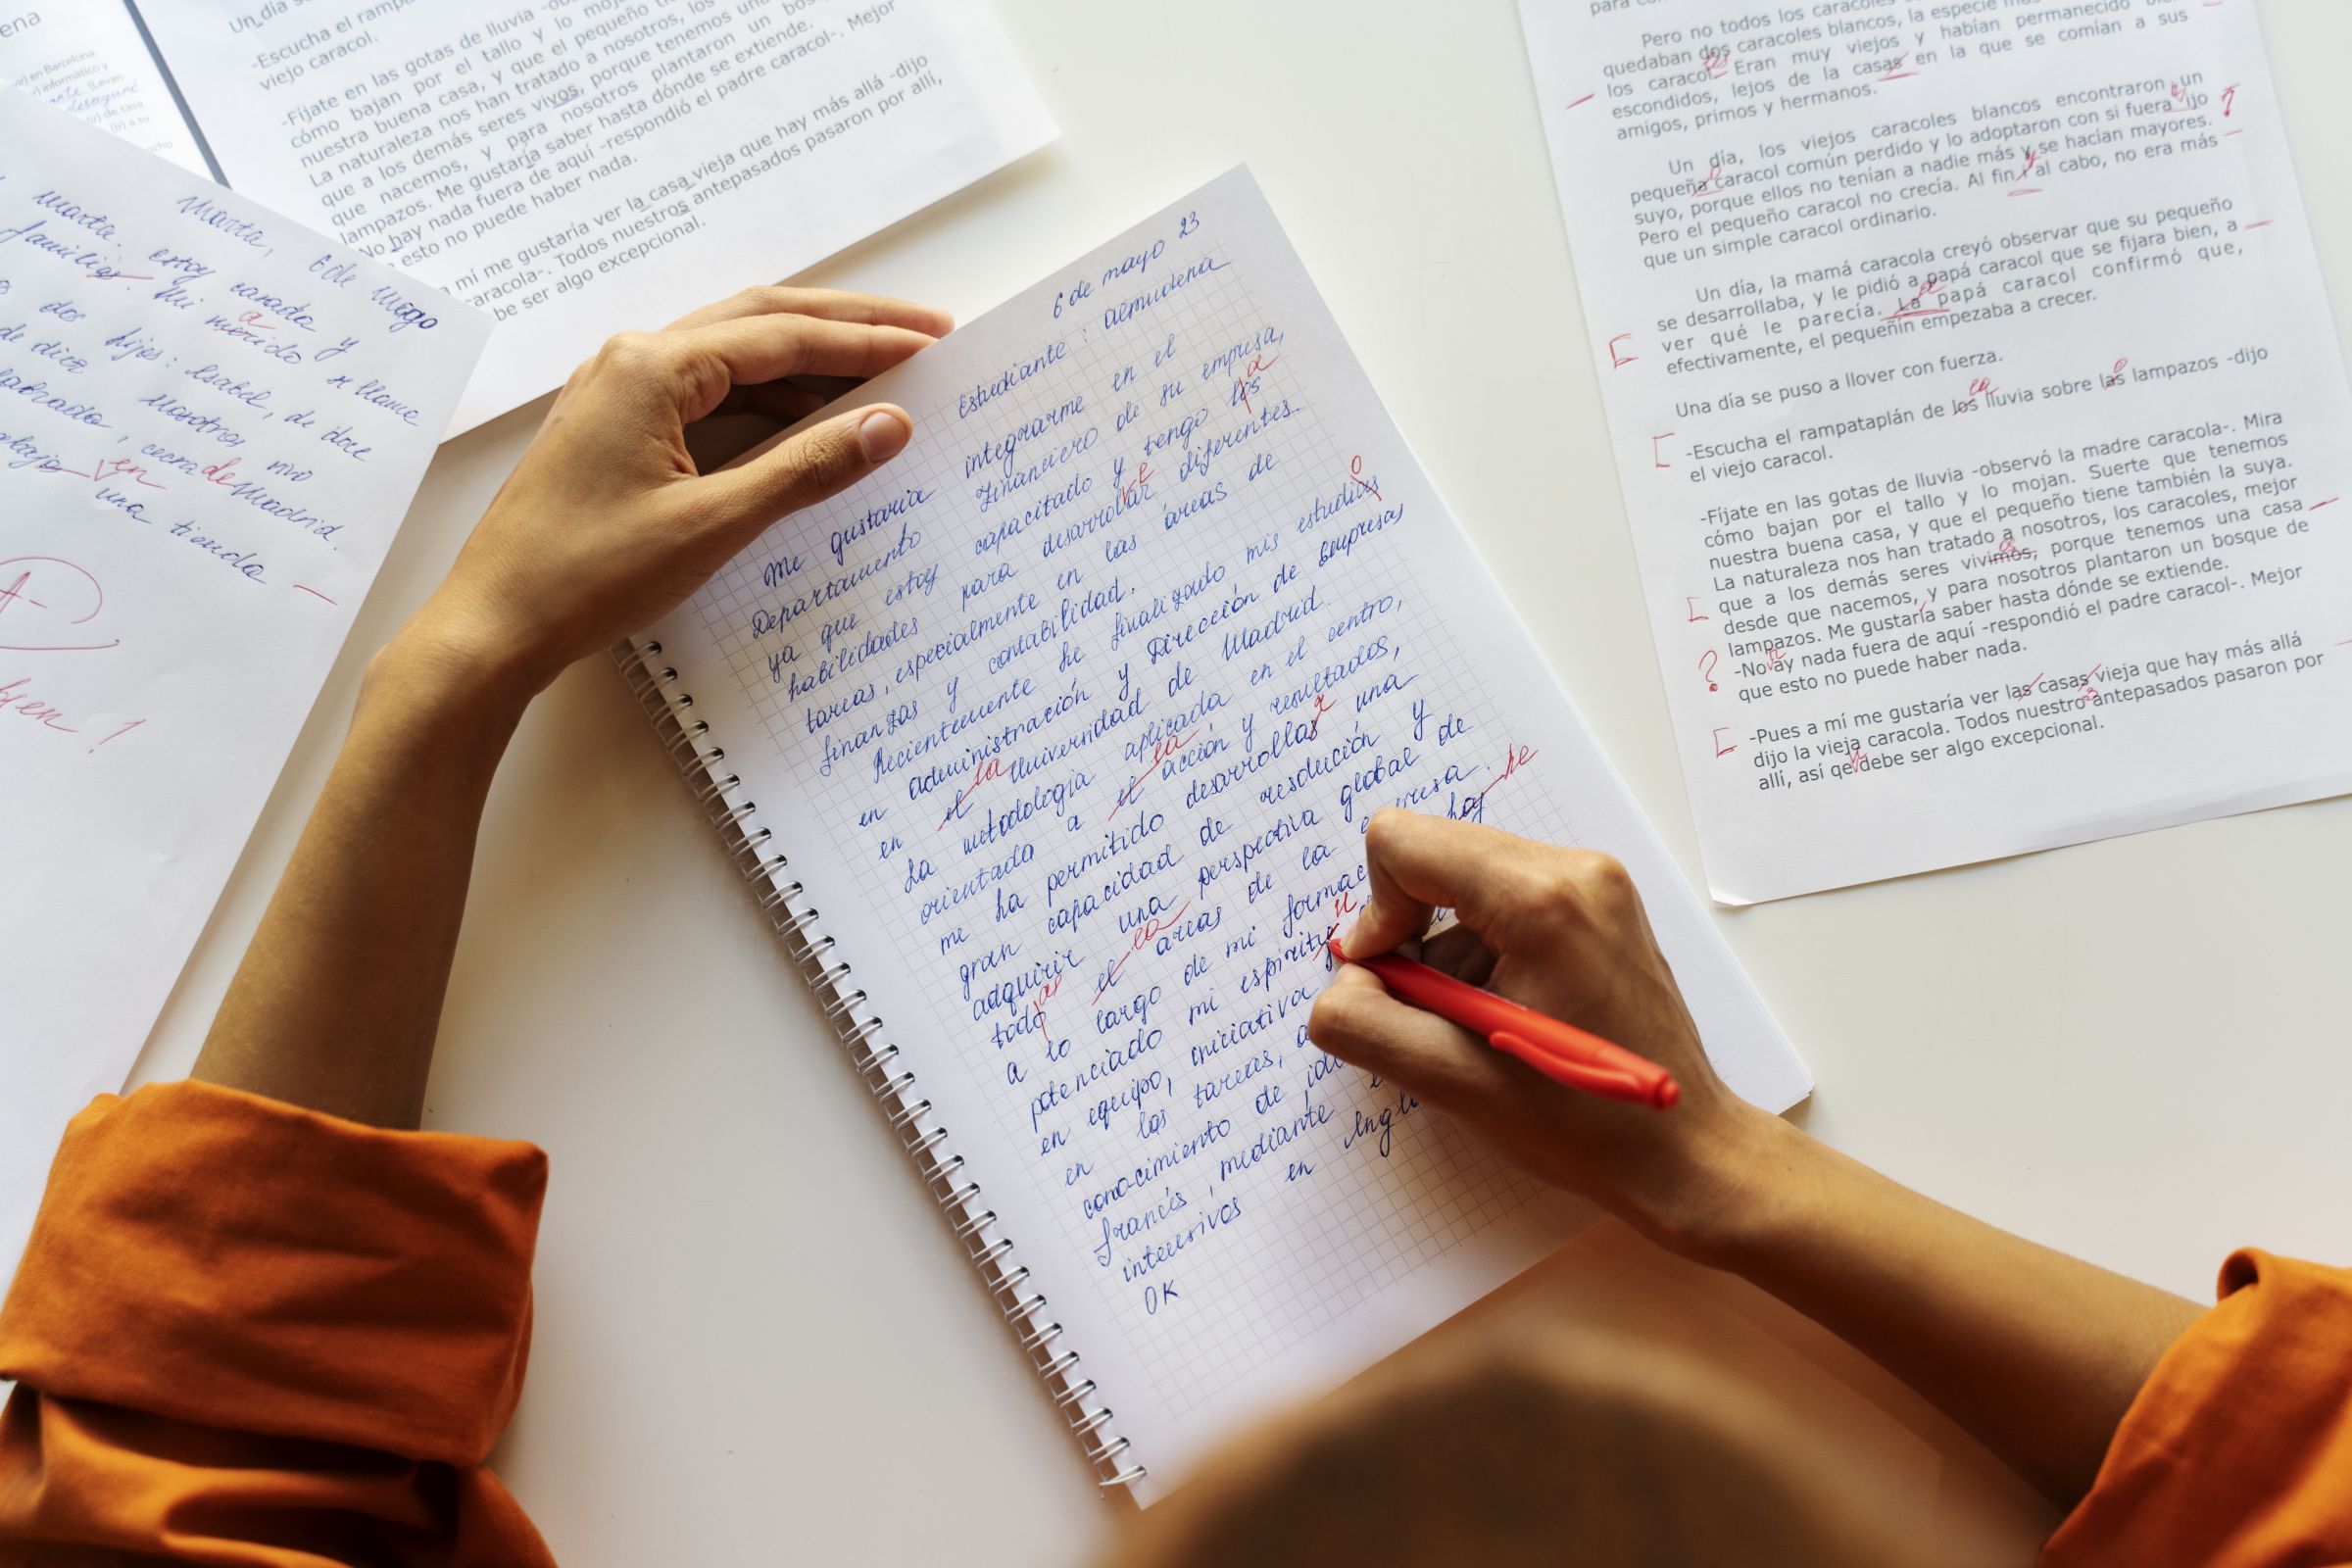 ena
en Barcelona.
informático y
de casa
a su
Un día
-Escucha el
viejo caracol.
-Fíjate en las gotas de lluvia
cómo bajan por el tallo y lo
nuestra buena casa, y que el pequeño
La naturaleza nos han tratado a nosotros, los
que a los demás seres vivos, porque tenemos
que nacemos, y para nosotros plantaron un
lampazos. Me gustaría saber hasta dónde se extiende.
No hay nada fuera de aquí -respondió el padre caracol-. Mejor
esto no puede haber nada.
mí me gustaría ver la casa vieja que hay más allá -dijo
caracola-. Todos nuestros antepasados pasaron por allí,
be ser algo excepcional.
Marta, 6 de mayo
Marta. estoy casada y
familia. Mi marido se llama
a
dos hijos: Isabel, de doce
de diez Nosotros vivo
cerca de Madrid.
en una tienda
A-
6 de mayo 23
Estudiante: Almudena
Me gustaria integrarme en el
Departamento financiero de su empresa,
ya que estoy capacitado y tengo los
a
habilidades para desarrollar diferentes
tareas, especialmente en las áreas de
finanzas y contabilidad.
Recientemente he finalizado mis estudias
o
en administración y Dirección de Empresas
en el Universidad de Madrid.
la
La metodologia aplicada en el centro,
orientada a el acción y resultados,
la
me ha permitido desarrollas una
r
gran capacidad de resolución y
adquirir una perspectiva global de
todo el areas de la
as la
a lo largo de mi
he
potenciado mi espiritu
en equipo, iniciativa
en las tareas,
conocimiento de
francés, mediante
intensivos en
OK
Pero no todos los caracoles
quedaban dos caracoles blancos, la especie
los caracol Eran muy viejos y habían permanecido
escondidos, lejos de la casas en la que se comían a sus
amigos, primos y hermanos.
Un día, los viejos caracoles blancos encontraron un
pequeña caracol común perdido y lo adoptaron con si fuera ijo
?
suyo, porque ellos no tenían a nadie más y se hacían mayores.
Pero el pequeño caracol no crecía. Al fin al cabo, no era más
que un simple caracol ordinario.
Un día, la mamá caracola creyó observar que su pequeño
se desarrollaba, y le pidió a papá caracol que se fijara bien, a
ver qué le parecía. La papá caracol confirmó que,
efectivamente, el pequeñín empezaba a crecer.
Una día se puso a llover con fuerza.
-Escucha el rampataplán de los lluvia sobre las lampazos -dijo
la o
el viejo caracol.
-Fíjate en las gotas de lluvia -observó la madre caracola-. Mira
cómo bajan por el tallo y lo mojan. Suerte que tenemos
nuestra buena casa, y que el pequeño tiene también la suya.
La naturaleza nos han tratado a nosotros, los caracoles, mejor
que a los demás seres vivimos, porque tenemos una casa
desde que nacemos, y para nosotros plantaron un bosque de
lampazos. Me gustaría saber hasta dónde se extiende.
?
-No ay nada fuera de aquí -respondió el padre caracol-. Mejor
que esto no puede haber nada.
-Pues a mí me gustaría ver las casas vieja que hay más allá
dijo la vieja caracola. Todos nuestro antepasados pasaron por
allí, así qe debe ser algo excepcional.